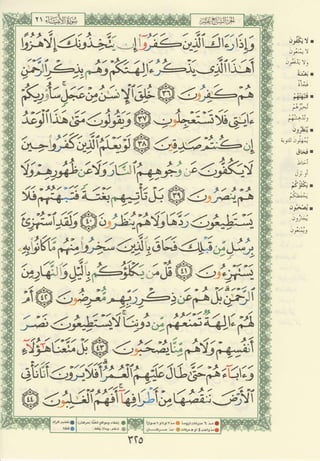 سُورَةُ الأَنبِيَاءِ ٢١
وَإِذَا رَءَاكَ الَّذِينَ كَفَرُوا إِن يَتَّخِذُونَكَ إِلَّا هُزُوًا
أَهَٰذَا الَّذِي يَذْكُرُ ءَالِهَتَكُمْ وَهُم بِذِكْرِ الرَّحْمَٰنِ
هُمْ كَافِرُونَ ٣٦ خُلِقَ الْإِنسَانُ مِنْ عَجَلٍ سَأُورِيكُمْ
ءَايَاتِي فَلَا تَسْتَعْجِلُونِ ٣٧ وَيَقُولُونَ مَتَىٰ هَٰذَا الْوَعْدُ
إِن كُنتُمْ صَادِقِينَ ٣٨ لَوْ يَعْلَمُ الَّذِينَ كَفَرُوا حِينَ
لَا يَكُفُّونَ عَن وُجُوهِهِمُ النَّارَ وَلَا عَن ظُهُورِهِمْ وَلَا
هُمْ يُنصَرُونَ ٣٩ بَلْ تَأْتِيهِم بَغْتَةً فَتَبْهَتُهُمْ فَلَا
يَسْتَطِيعُونَ رَدَّهَا وَلَا هُمْ يُنظَرُونَ ٤٠ وَلَقَدِ اسْتُهْزِئَ
بِرُسُلٍ مِّن قَبْلِكَ فَحَاقَ بِالَّذِينَ سَخِرُوا مِنْهُم مَّا كَانُوا بِهِ
يَسْتَهْزِءُونَ ٤١ قُلْ مَن يَكْلَؤُكُم بِالَّيْلِ وَالنَّهَارِ مِنَ
الرَّحْمَٰنِ بَلْ هُمْ عَن ذِكْرِ رَبِّهِم مُّعْرِضُونَ ٤٢ أَمْ
لَهُمْ ءَالِهَةٌ تَمْنَعُهُم مِّن دُونِنَا لَا يَسْتَطِيعُونَ نَصْرَ
أَنفُسِهِمْ وَلَا هُم مِّنَّا يُصْحَبُونَ ٤٣ بَلْ مَتَّعْنَا هَٰؤُلَاءِ
وَءَابَاءَهُمْ حَتَّىٰ طَالَ عَلَيْهِمُ الْعُمُرُ أَفَلَا يَرَوْنَ أَنَّا نَأْتِي
الْأَرْضَ نَنقُصُهَا مِنْ أَطْرَافِهَا أَفَهُمُ الْغَالِبُونَ ٤٤
٣٢٥